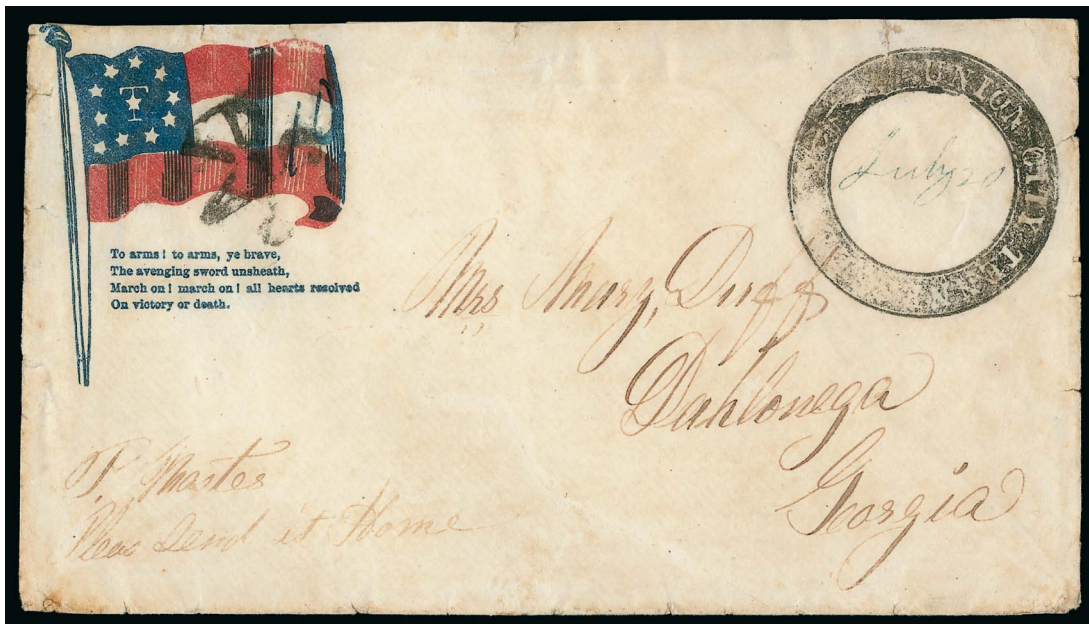 T
PAID
10
To arms! to arms, ye brave,
The avenging sword unsheath,
March on! march on! all hearts resolved
On victory or death.
UNION CITY TENN
July 20
Mrs Mary, Duff
Dahlonega
Georgia
P. Master
Pleas Send it Home